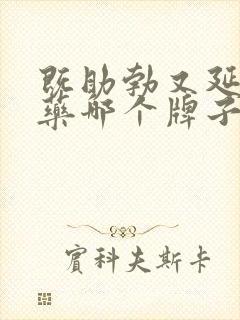 既助勃又延
藥哪个牌子
賓科夫斯卡